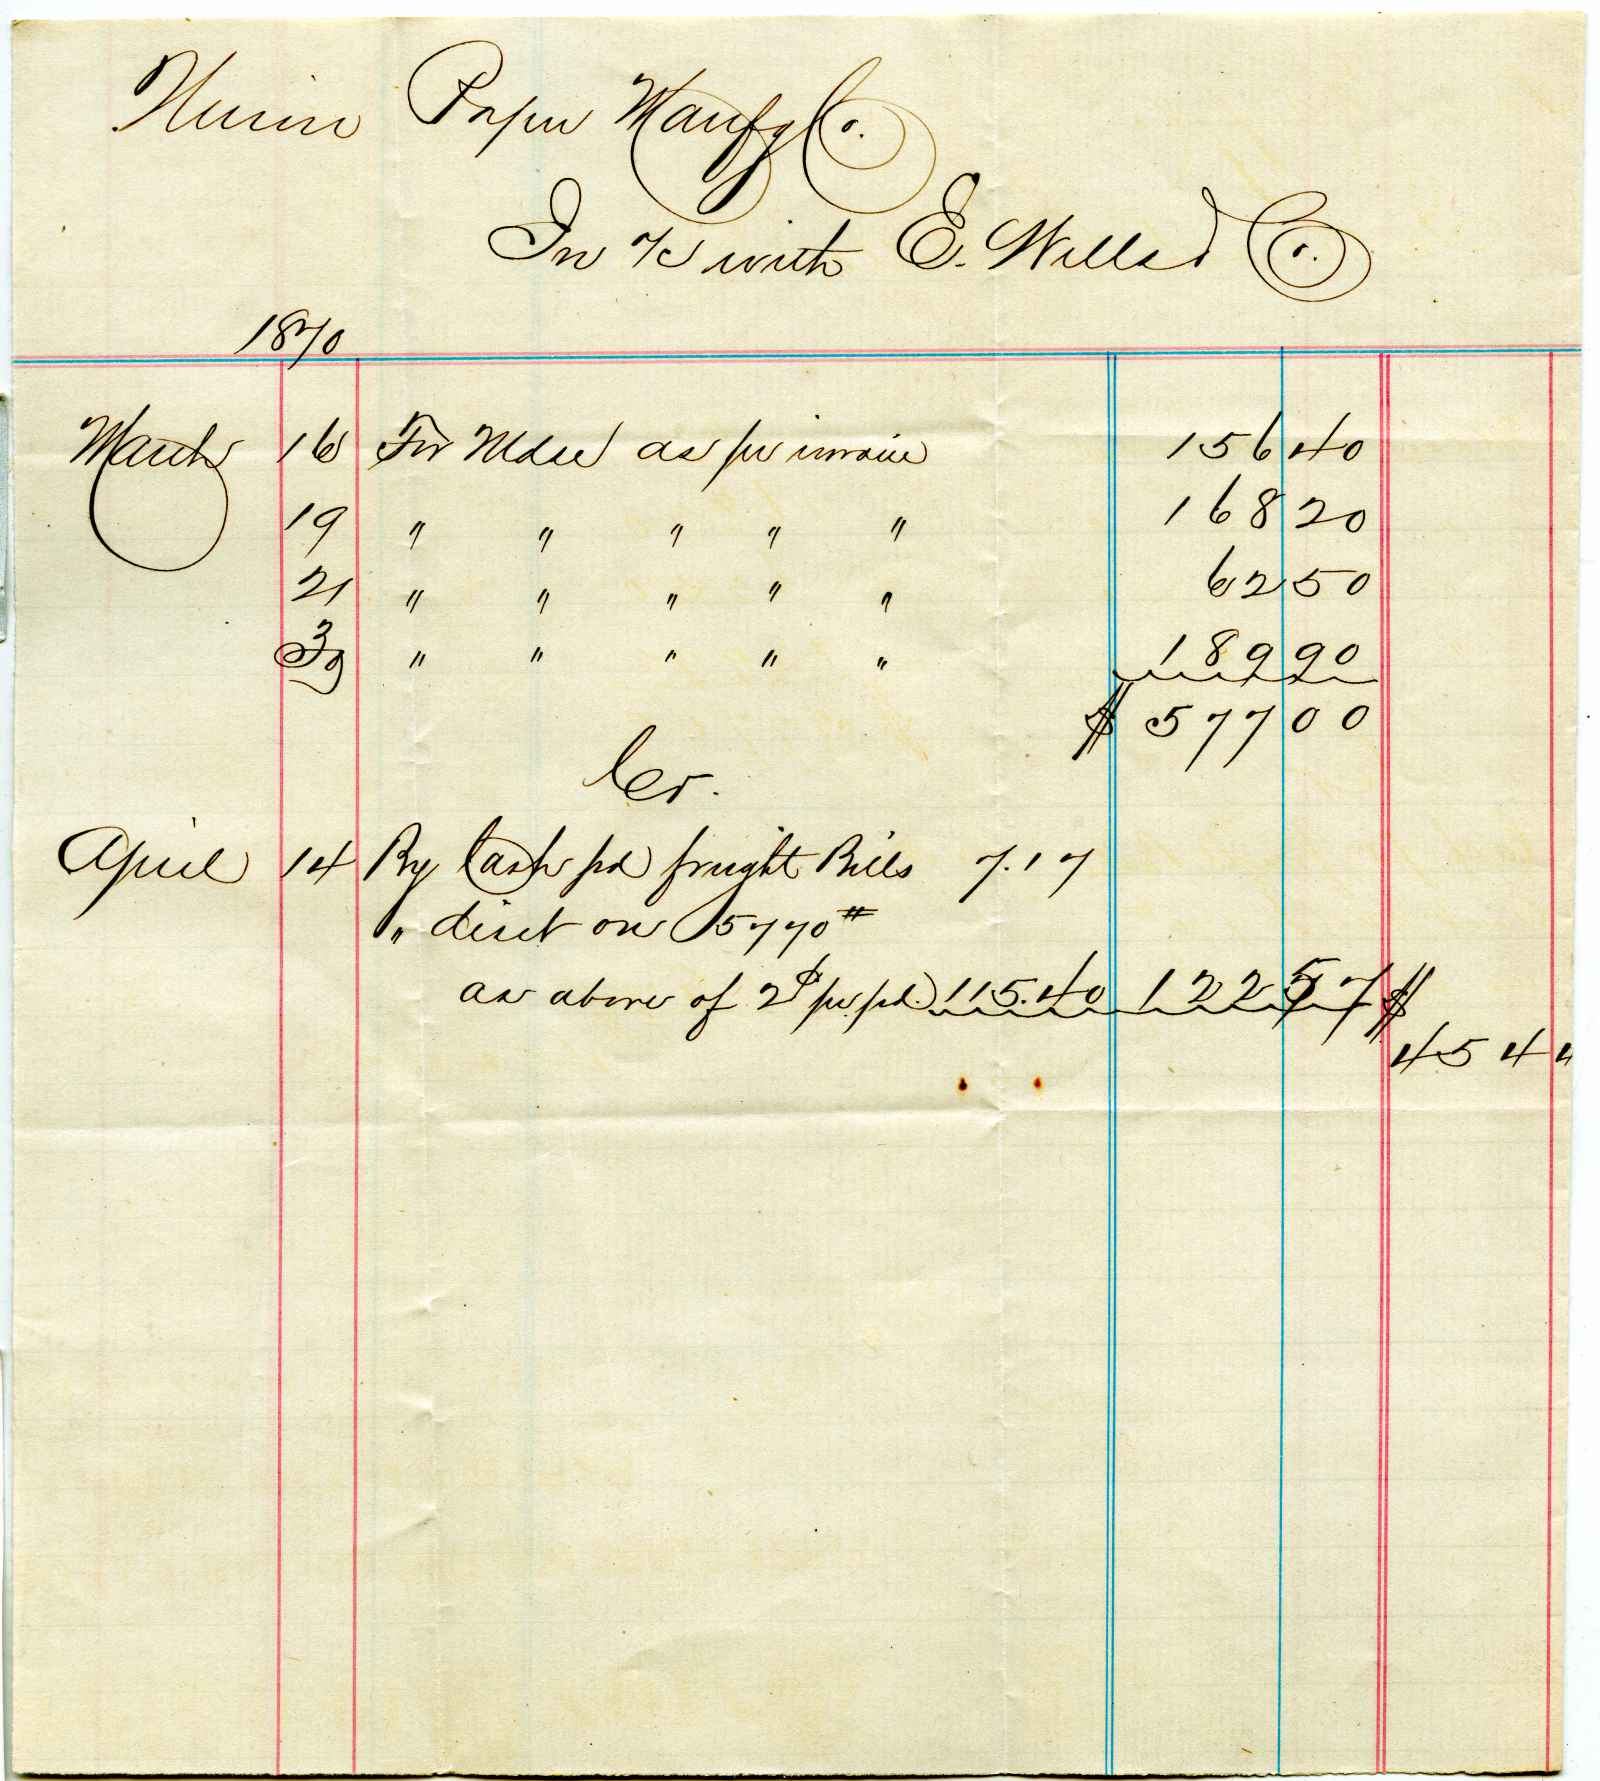 Paper Manfg Co.
In a/c with E. Co.
1870
March 16 For Mdse as per invoice 156 40
19 " " " " " 168 20
21 " " " " " 62 50
" " " " " 189 90
$ 577 00
Cr.
April 14 By Cash pd freight Bills 7.17
" disct on 5770#
as above of 2¢ per pd. 115.40 122 57 $
454 4